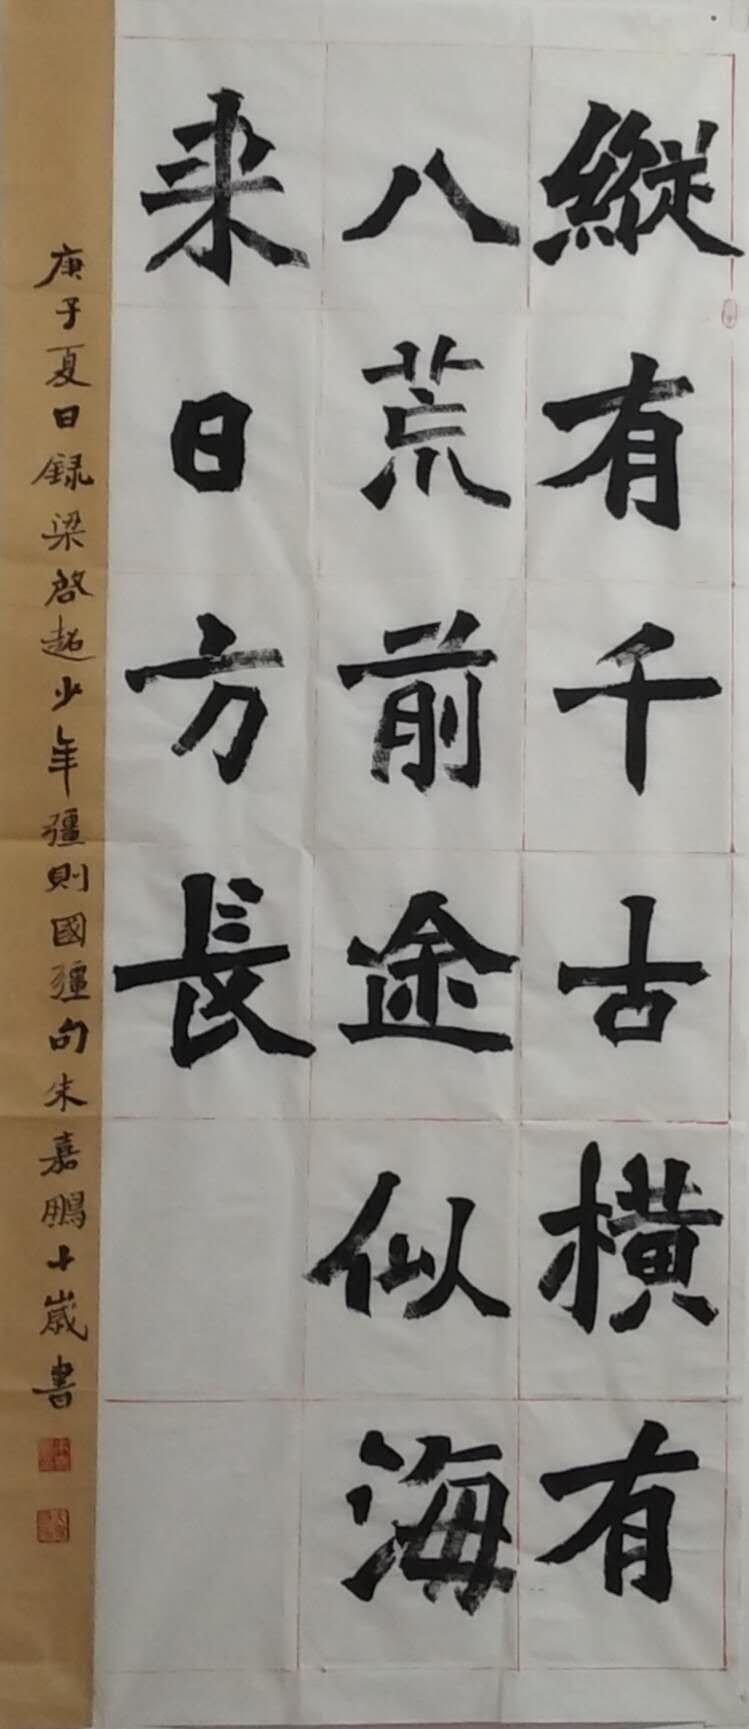 縱有千古橫有
八荒前途似海
来日方長
庚子夏日録梁啓超少年彊則國彊句朱嘉鵬十歳書